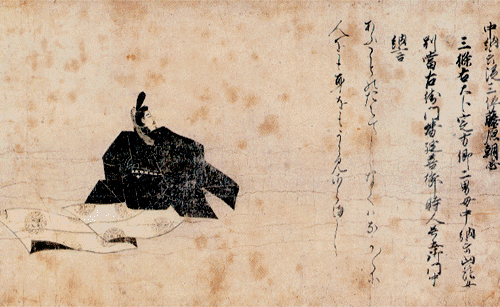 中納言従三位藤原朝忠
三條右大臣定方卿二男母中納言山蔭女
別當右衛門督延喜御時人号土御門中
納言
あふことのたえてしなくはなか〱に
人をも身をもうらみさらまし